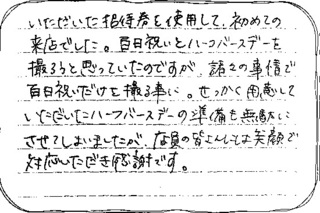 いただいた招待券を使用して、初めての
来店でした。百日祝いとハーフバースデーを
撮ろうと思っていたのですが、諸々の事情で
百日祝いだけを撮る事に。せっかく用意して
いただいたハーフバースデーの準備も無駄に
させてしまいましたが、店員の皆さんとても笑顔で
対応いただき感謝です。